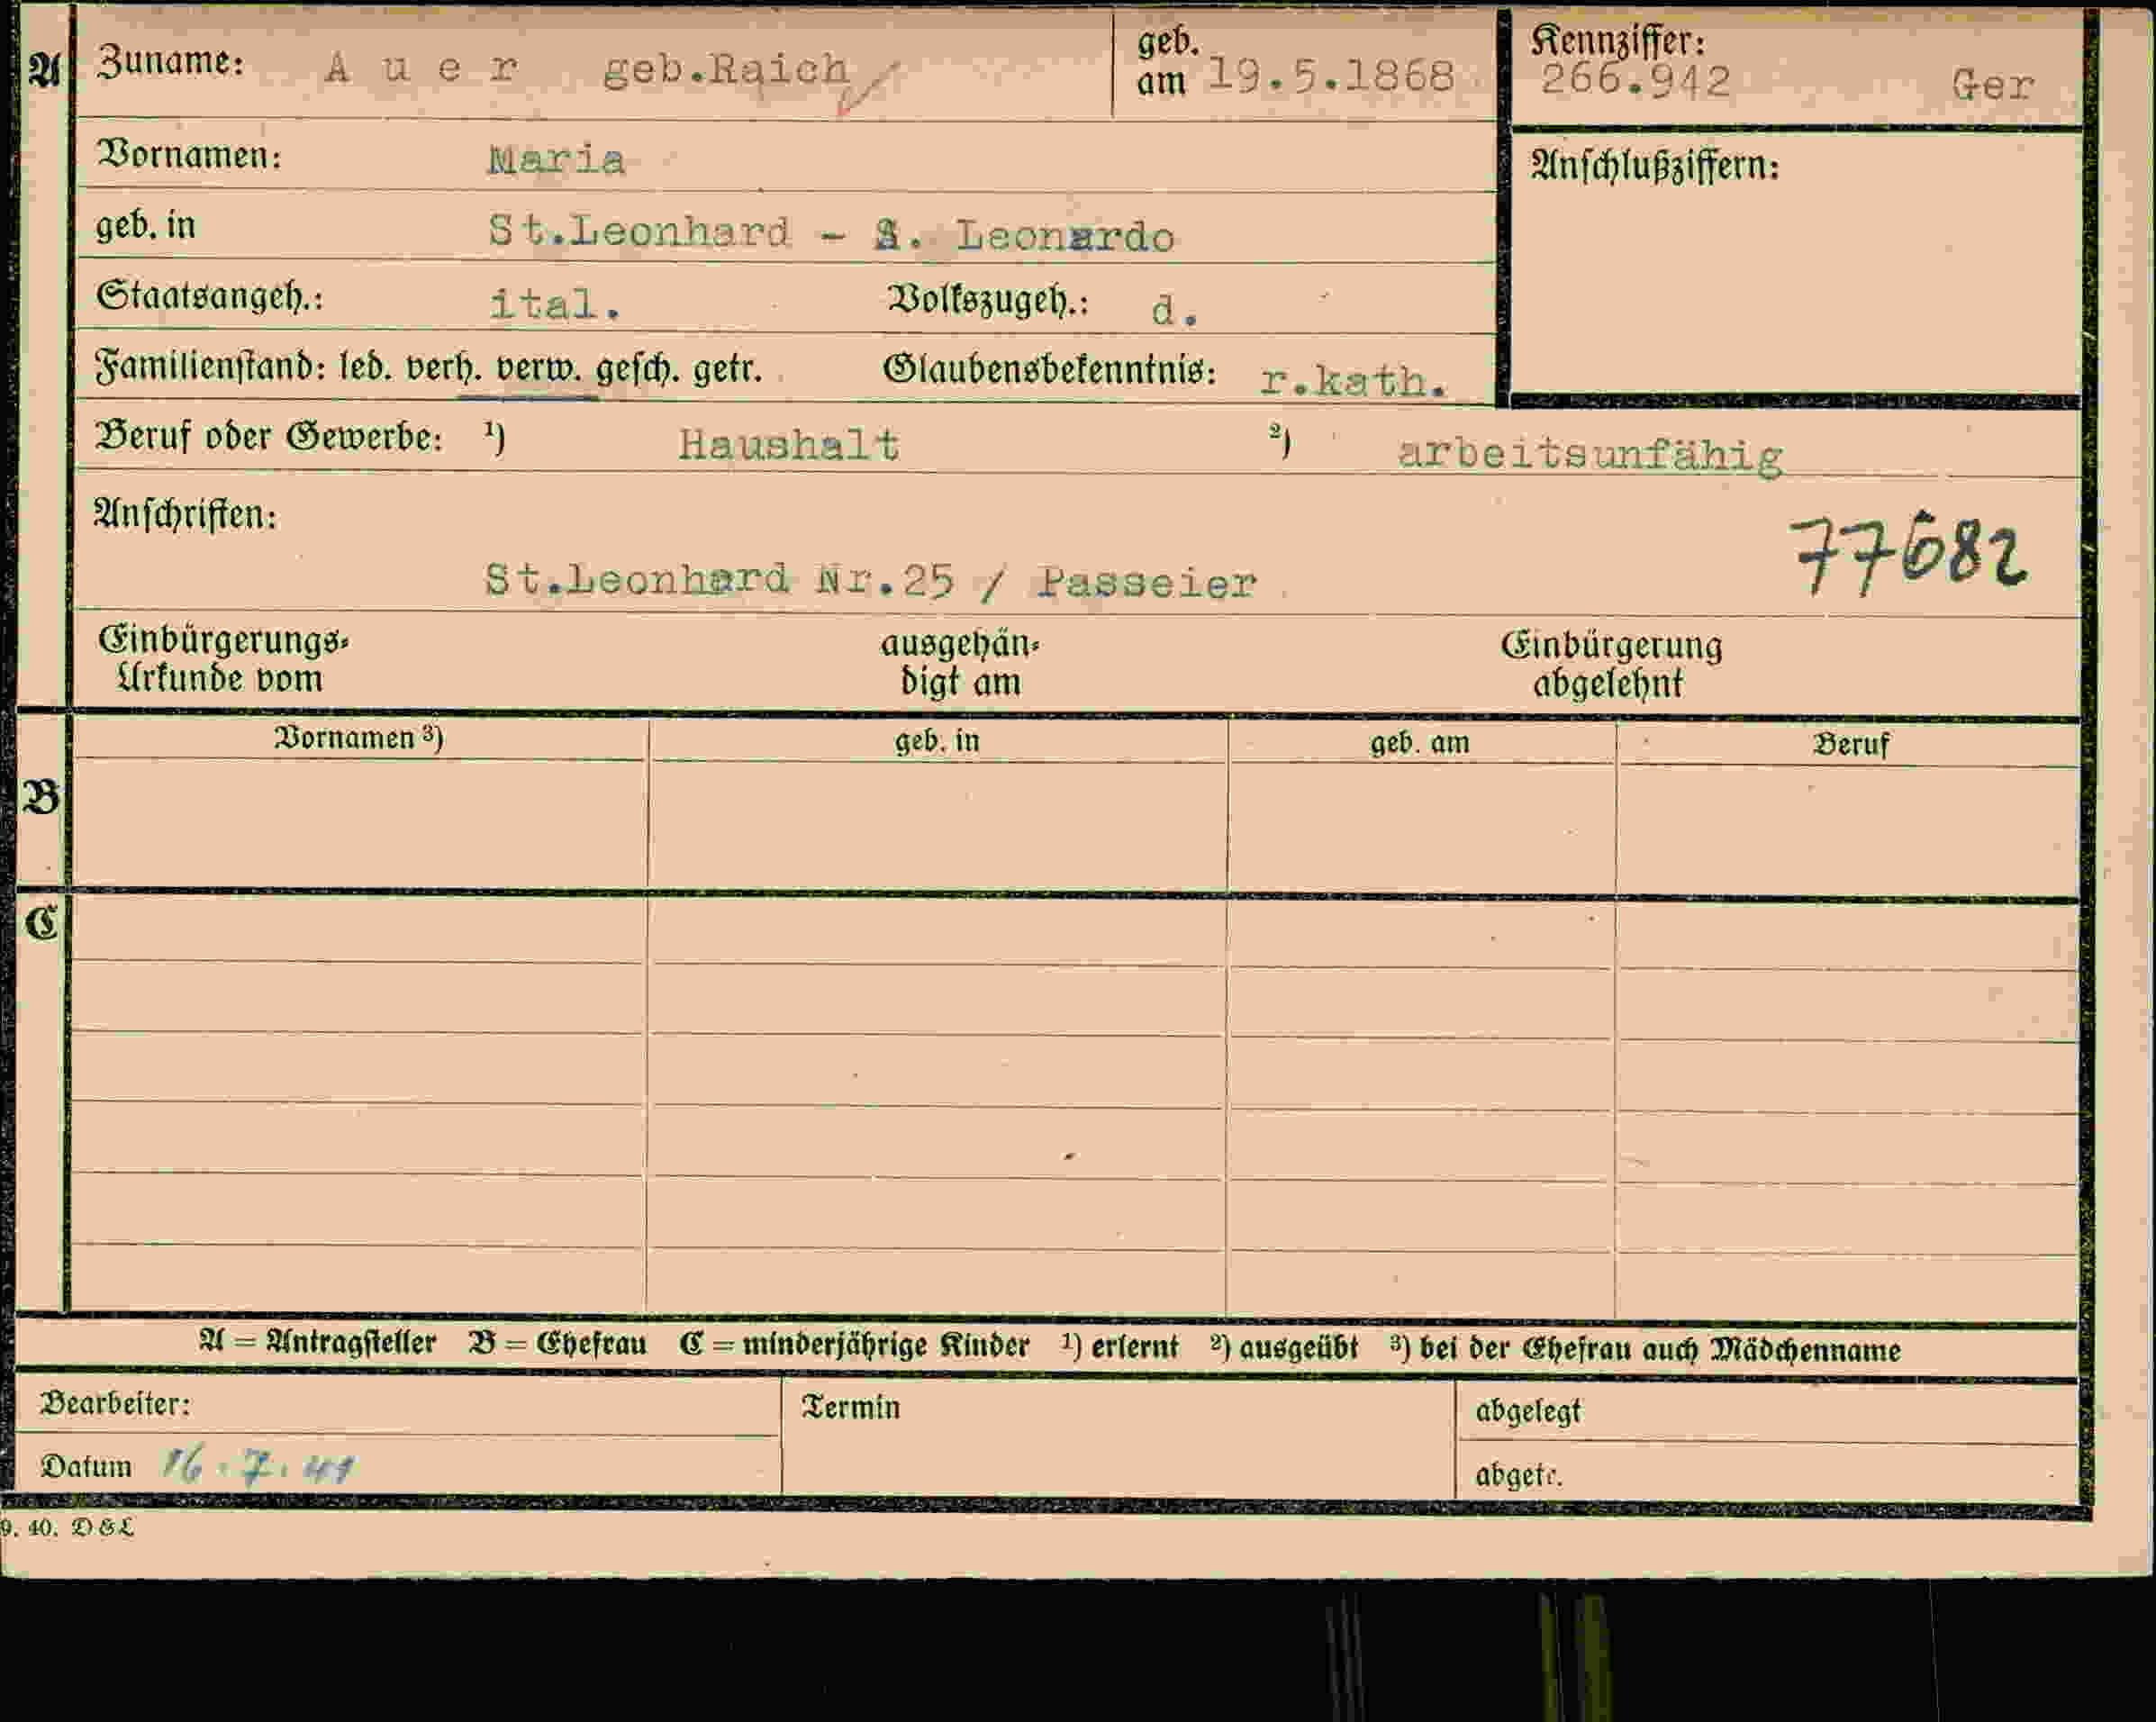 A Zuname: Auer geb.Raich geb. am 19.5.1868 Kennziffer: 266.942 Ger
Vornamen: Maria Anschlußziffern:
geb. in St.Leonhard - S. Leonardo
Staatsangeh.: ital. Volkszugeh.: d.
Familienstand: led. verh. verw. gesch. getr. Glaubensbekenntnis: r.kath.
Beruf oder Gewerbe: ¹) Haushalt ²) arbeitsunfähig
Anschriften:
77682
St.Leonhard Nr.25 / Passeier
Einbürgerungs- ausgehän- Einbürgerung
Urkunde vom digt am abgelehnt
Vornamen ³) geb. in geb. am Beruf
B
C
A = Antragsteller B = Ehefrau C = minderjährige Kinder ¹) erlernt ²) ausgeübt ³) bei der Ehefrau auch Mädchenname
Bearbeiter: Termin abgelegt
Datum 16.7.41 abgetr.
9. 40. D&L